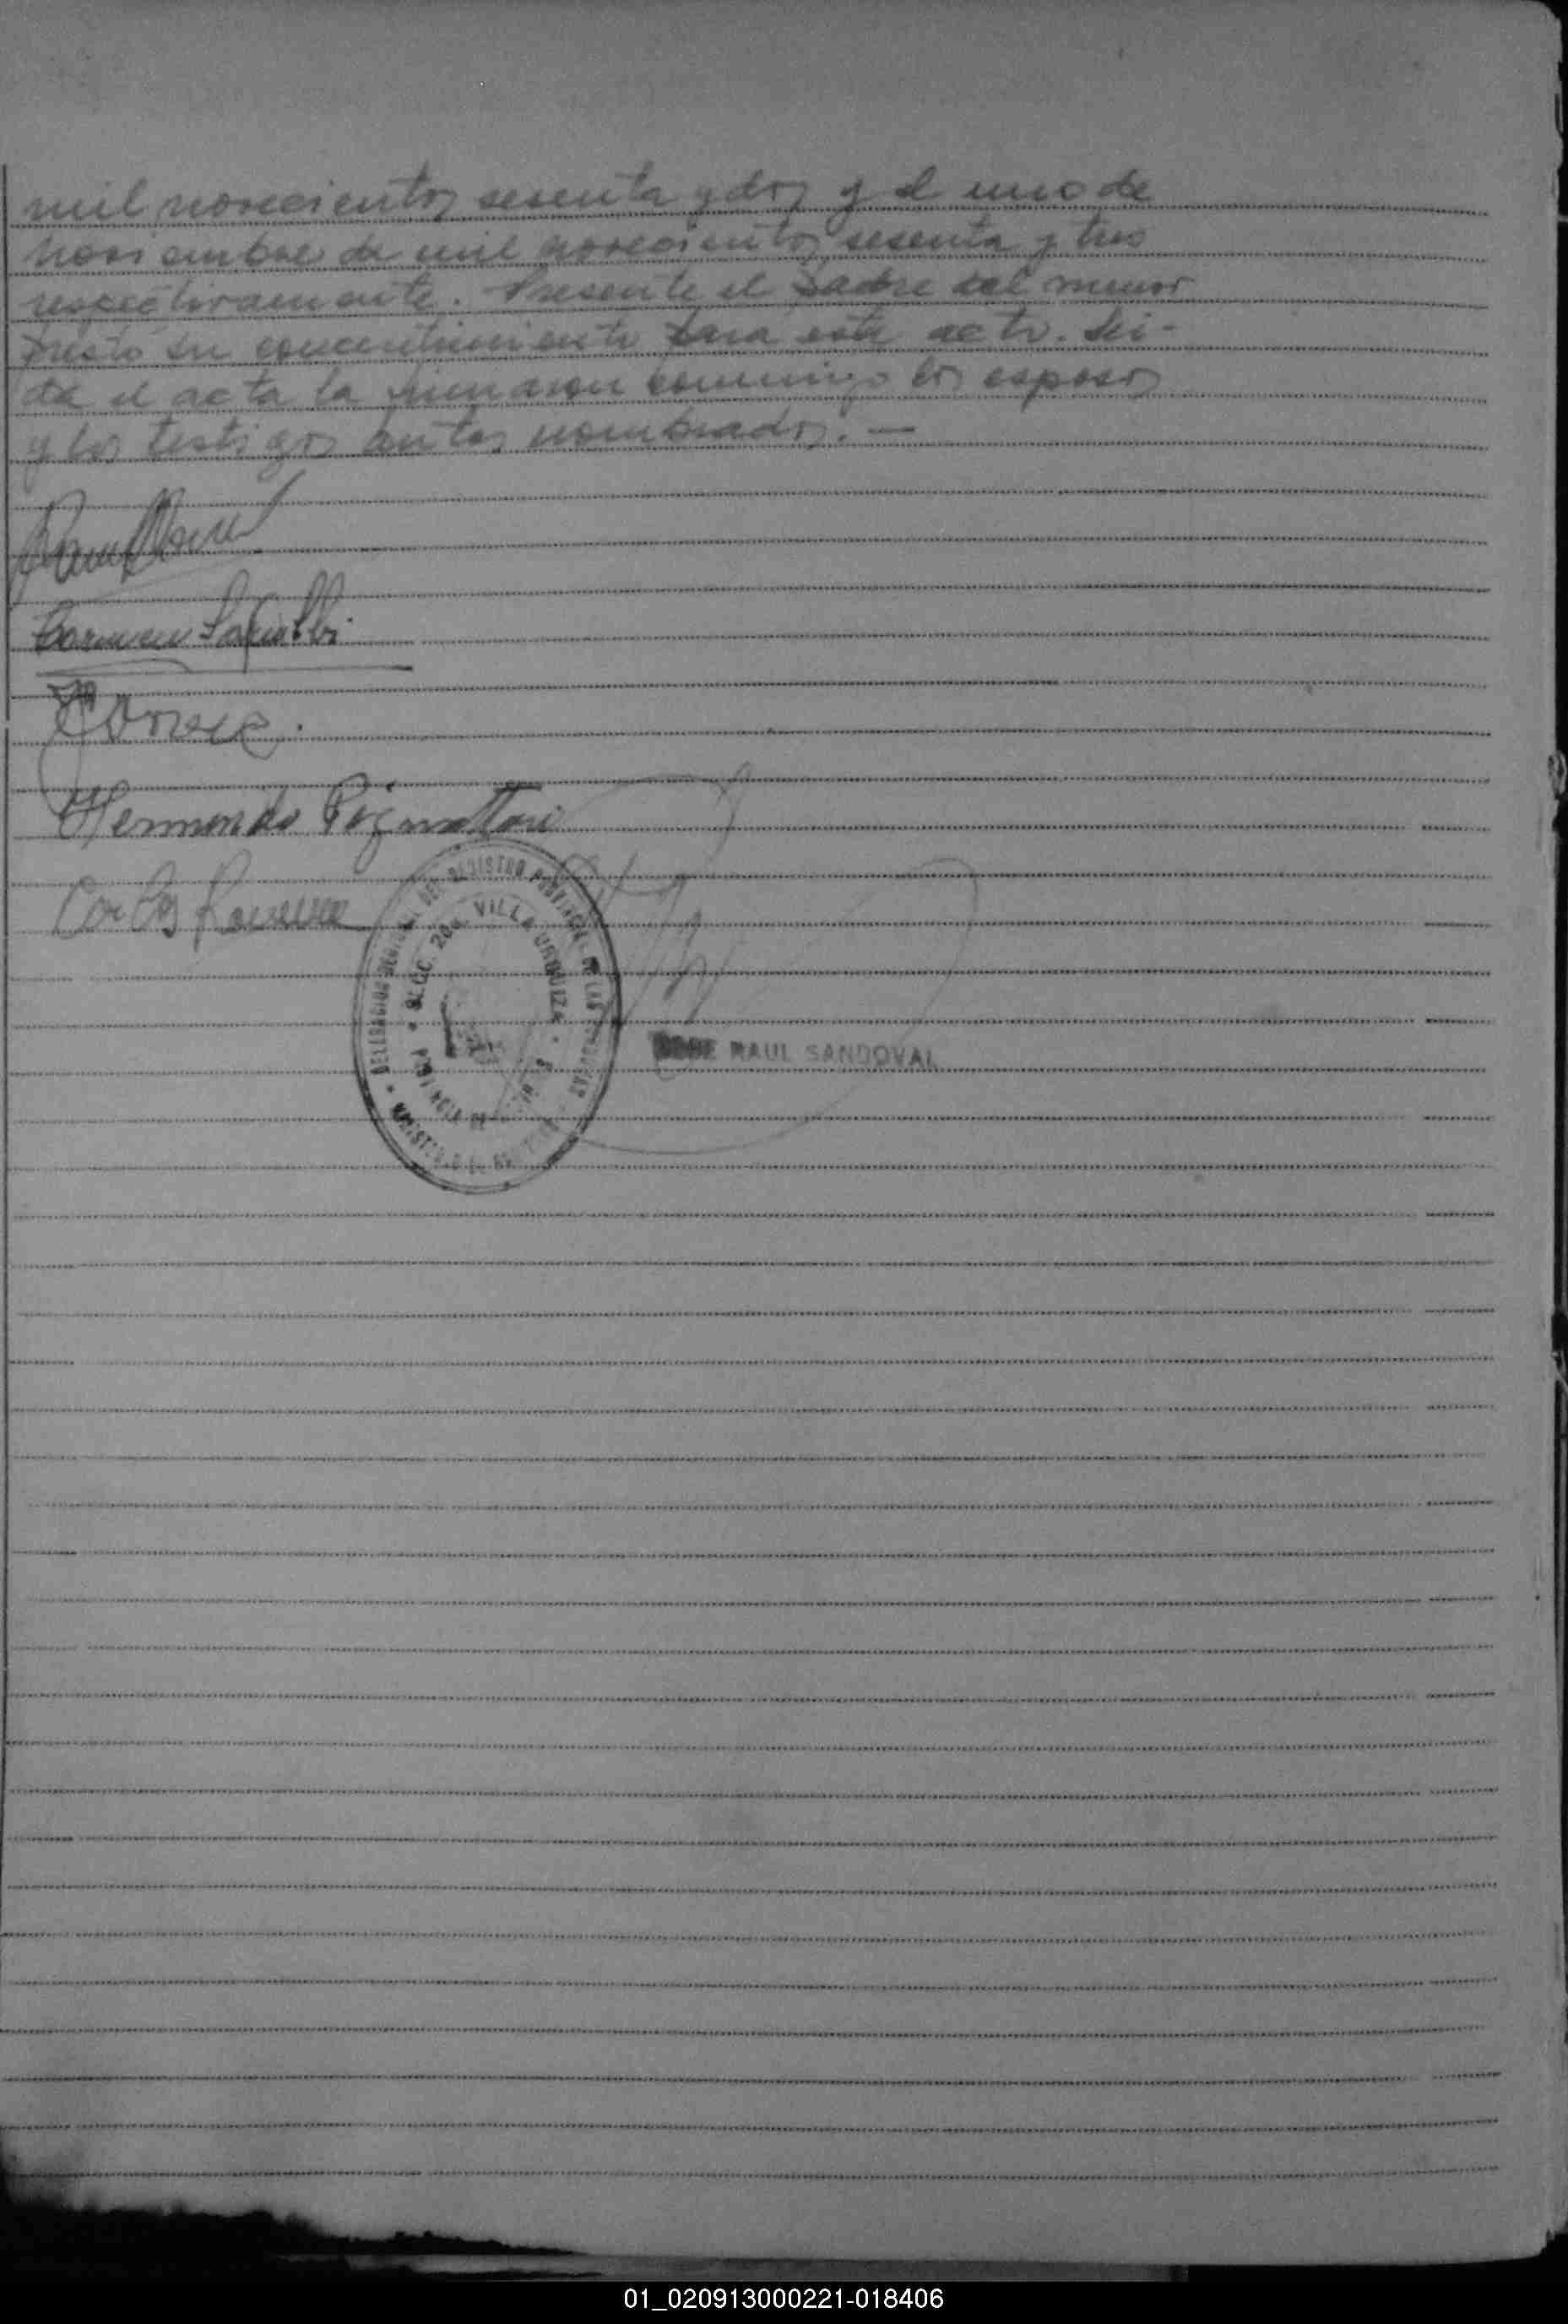 mil novecientos sesenta y dos y el uno de
noviembre de mil novecientos sesenta y tres
respectivamente. Presente el padre del menor
prestó su concentimiento para este acto. Lei-
da el acta la firmaron conmigo los esposos
y los testigos antes nombrados. —
Carmen
Hermindo Pignattari
Carlos
DEL REGISTRO PROVINCIAL DE LAS PERSONAS
SECC. 20a. VILLA URQUIZA
RAUL SANDOVAL
01_020913000221-018406